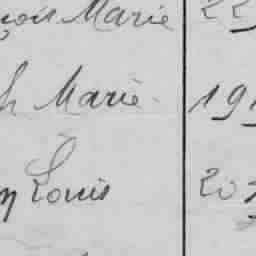 çois Marie 22
h Marie 19
n Louis 20